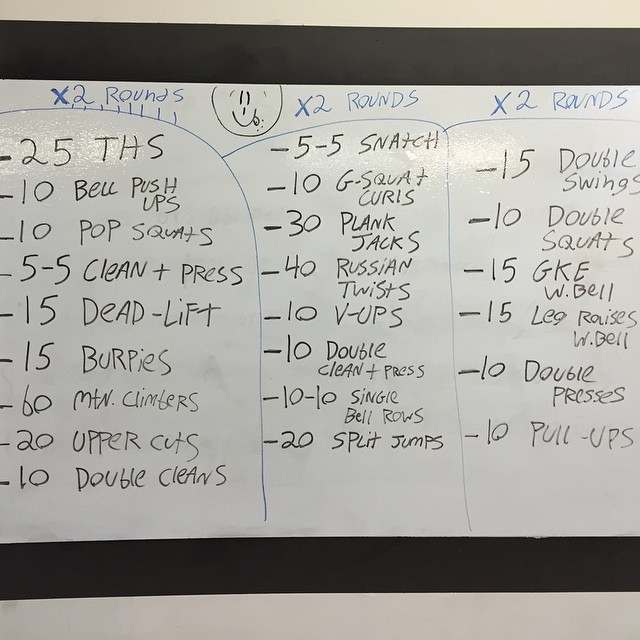 X2 Rounds
- 25 THS
- 10 Bell PUSH
UPS
- 10 POP SQUATS
- 5-5 CLEAN + PRESS
- 15 DEAD-LIFT
- 15 BURPIES
- 60 MTN. Climbers
- 20 UPPER CUTS
- 10 DOUBLE CLEANS
X2 ROUNDS
- 5-5 SNATCH
- 10 G-SQUAT
CURLS
- 30 PLANK
JACKS
- 40 RUSSIAN
TWISTS
- 10 V-UPS
- 10 DOUBLE
CLEAN + PRESS
- 10-10 SINGLE
BELL ROWS
- 20 SPLIT JUMPS
X2 ROUNDS
- 15 DOUBLE
SWINGS
- 10 DOUBLE
SQUATS
- 15 GKE
W.BELL
- 15 Leg Raises
W.BELL
- 10 DOUBLE
PRESSES
- 10 PULL-UPS